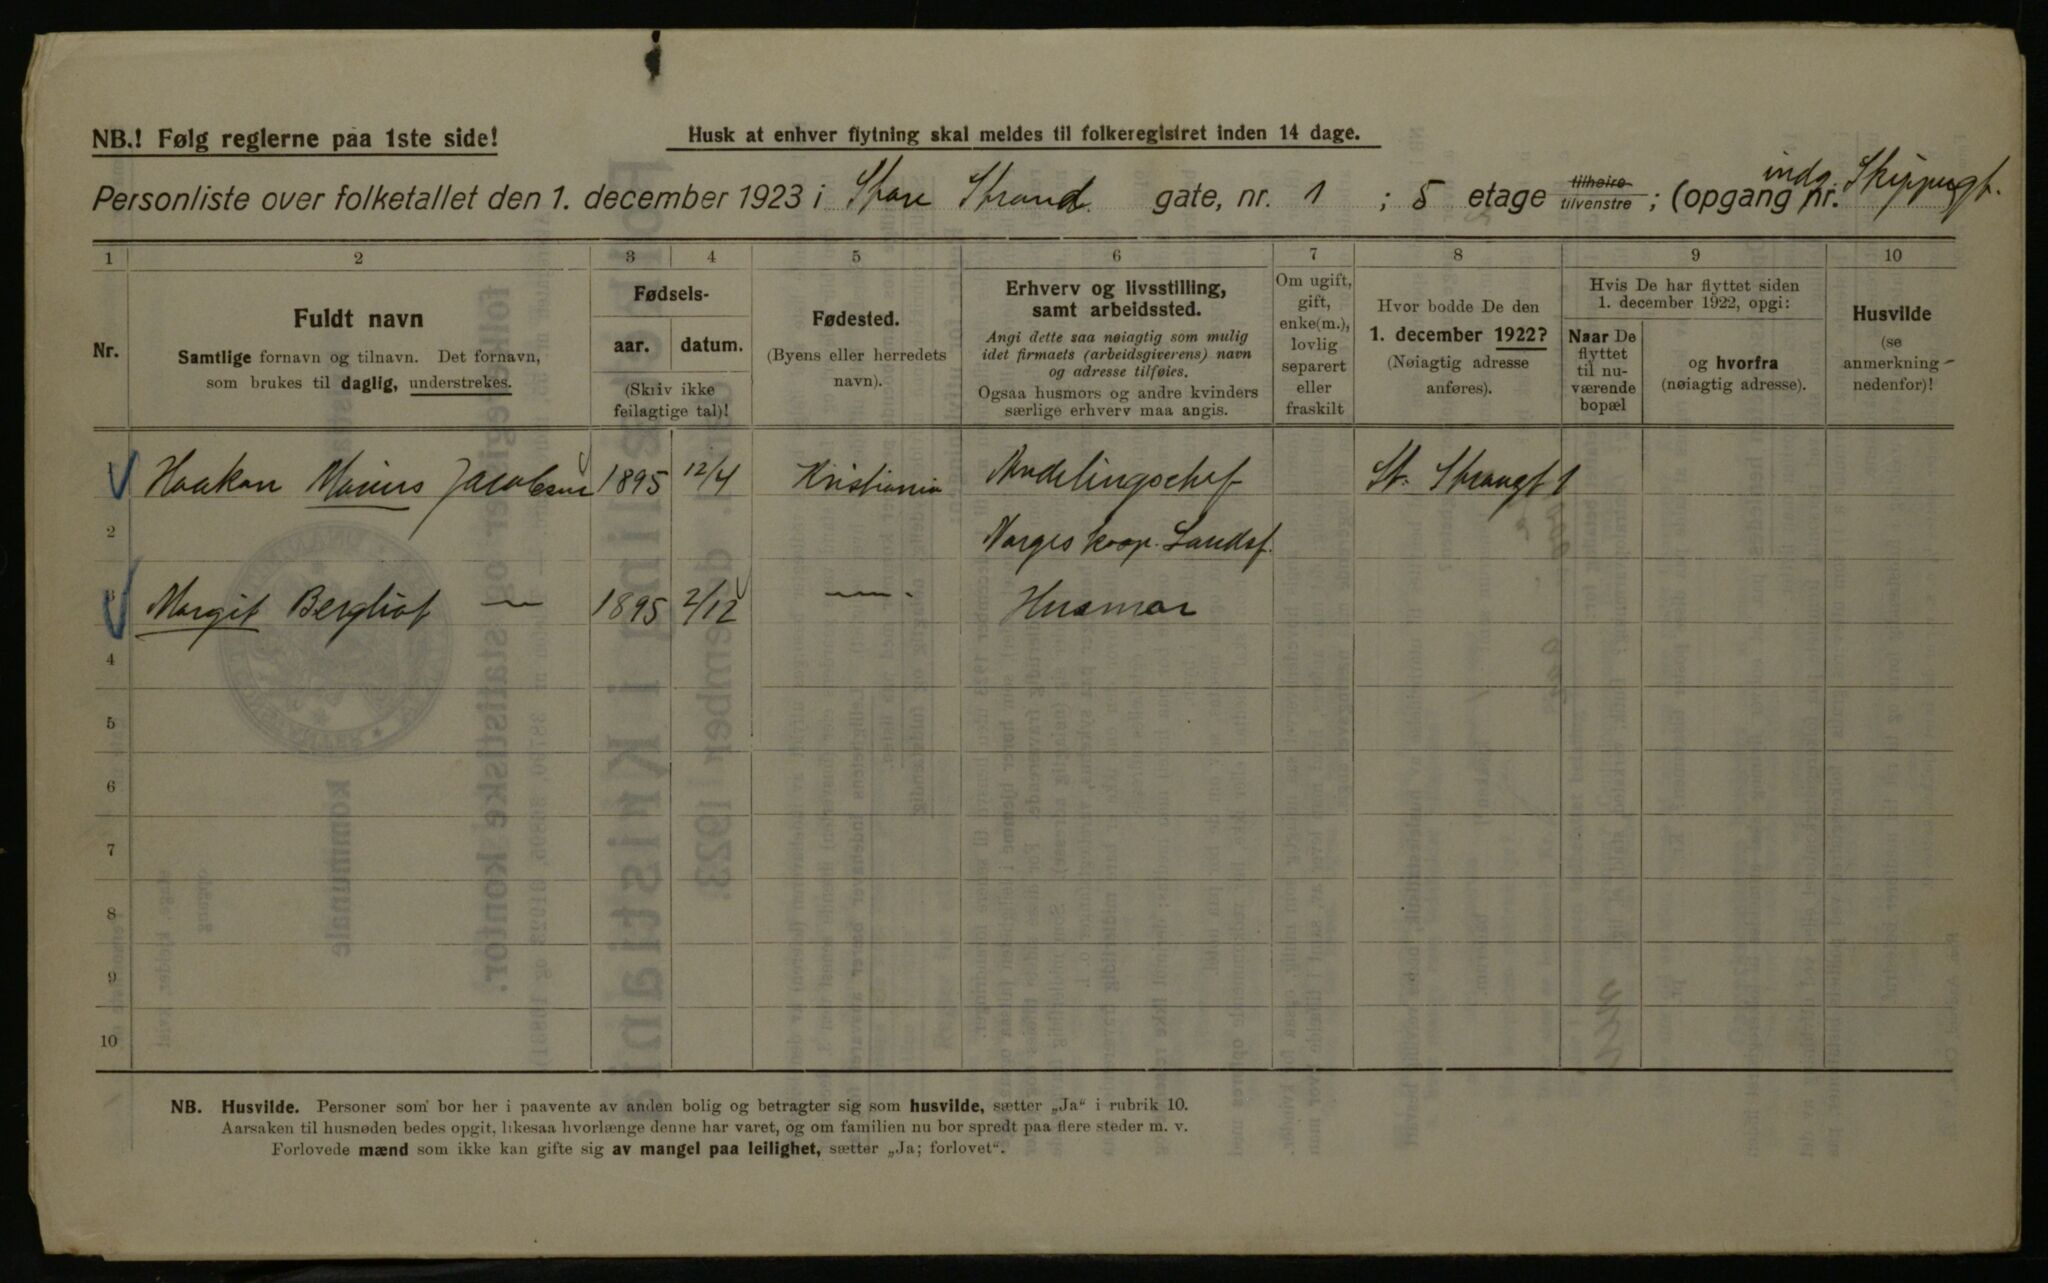 NB.! Følg reglerne paa 1ste side!
Husk at enhver flytning skal meldes til folkeregistret inden 14 dage.
Personliste over folketallet den 1. december 1923 i Store Strand gate, nr. 1 ; 5 etage tilhøire tilvenstre ; (opgang nr. indg. Skippergt.
1 2 3 4 5 6 7 8 9 10
Nr.
Fuldt navn
Samtlige fornavn og tilnavn. Det fornavn,
som brukes til daglig, understrekes.
Fødsels-
aar. datum.
(Skriv ikke
feilagtige tal)!
Fødested.
(Byens eller herredets
navn).
Erhverv og livsstilling,
samt arbeidssted.
Angi dette saa nøiagtig som mulig
idet firmaets (arbeidsgiverens) navn
og adresse tilføies.
Ogsaa husmors og andre kvinders
særlige erhverv maa angis.
Om ugift,
gift,
enke(m.),
lovlig
separert
eller
fraskilt
Hvor bodde De den
1. december 1922?
(Nøiagtig adresse
anføres).
Hvis De har flyttet siden
1. december 1922, opgi:
Naar De
flyttet
til nu-
værende
bopæl
og hvorfra
(nøiagtig adresse).
Husvilde
(se
anmerkning
nedenfor)!
1 Haakon Marius Jacobsen 1895 12/4 Kristiania Avdelingschef St. Strangt 1
2 Norges koop. Landsf.
3 Margit Bergliot — 1895 2/12 — Husmor
4
5
6
7
8
9
10
NB. Husvilde. Personer som bor her i paavente av anden bolig og betragter sig som husvilde, sætter „Ja“ i rubrik 10.
Aarsaken til husnøden bedes opgit, likesaa hvorlænge denne har varet, og om familien nu bor spredt paa flere steder m. v.
Forlovede mænd som ikke kan gifte sig av mangel paa leilighet, sætter „Ja; forlovet“.